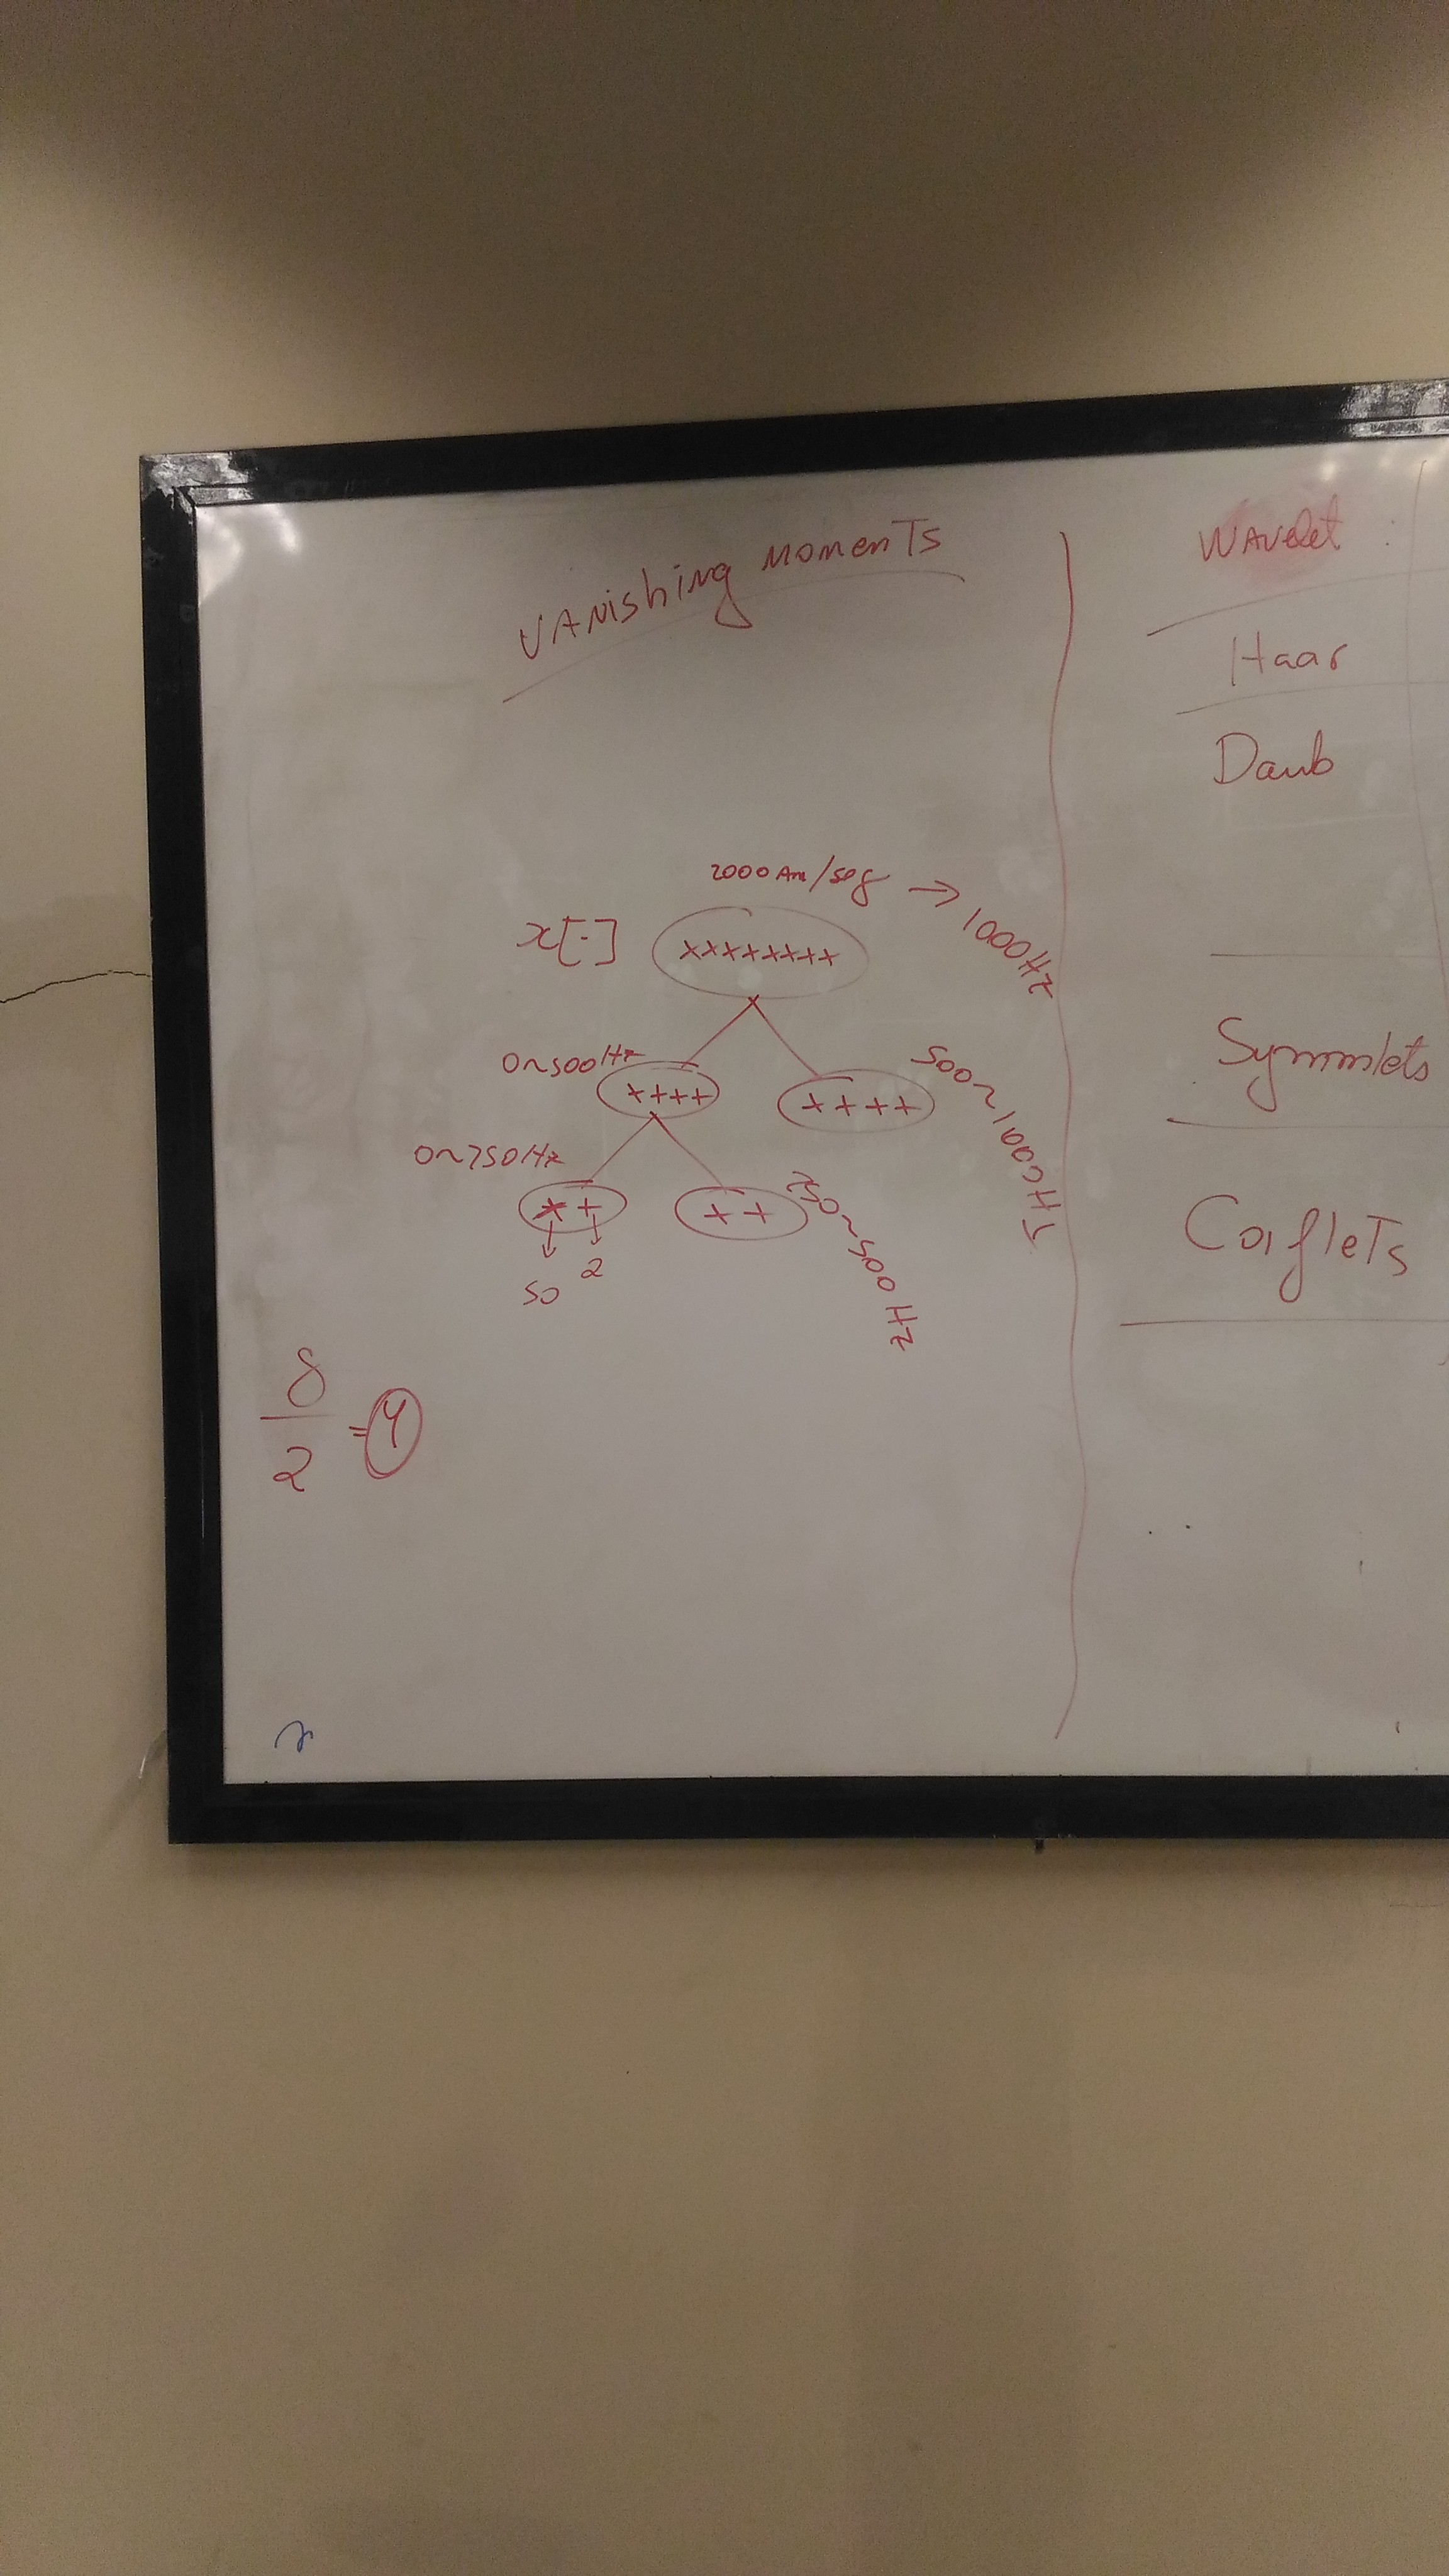 VANishing momenTs
2000 Am/seg → 1000Hz
x[·] xxxxxxxx
0~500Hz ++++ ++++ 500~1000Hz
0~250Hz ++ ++ 250~500Hz
50 2
8/2 = 4
WAVelet :
Haar
Daub
Symmlets
CoifleTs